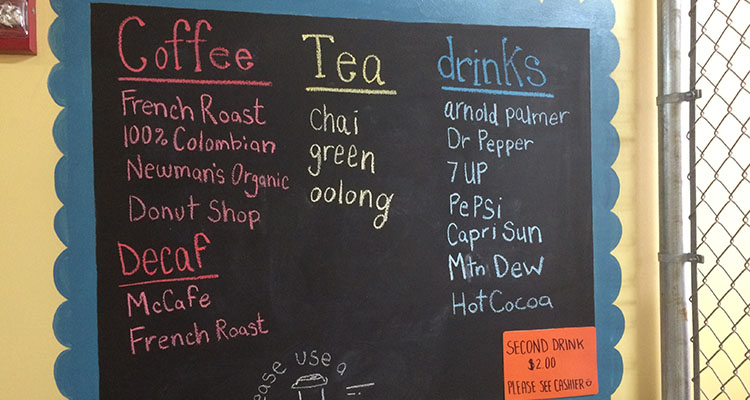 Coffee
French Roast
100% Colombian
Newman's Organic
Donut Shop
Decaf
McCafe
French Roast
Tea
chai
green
oolong
drinks
arnold palmer
Dr Pepper
7 UP
Pepsi
Capri Sun
Mtn Dew
Hot Cocoa
SECOND DRINK
$2.00
PLEASE SEE CASHIER☺
ease use a